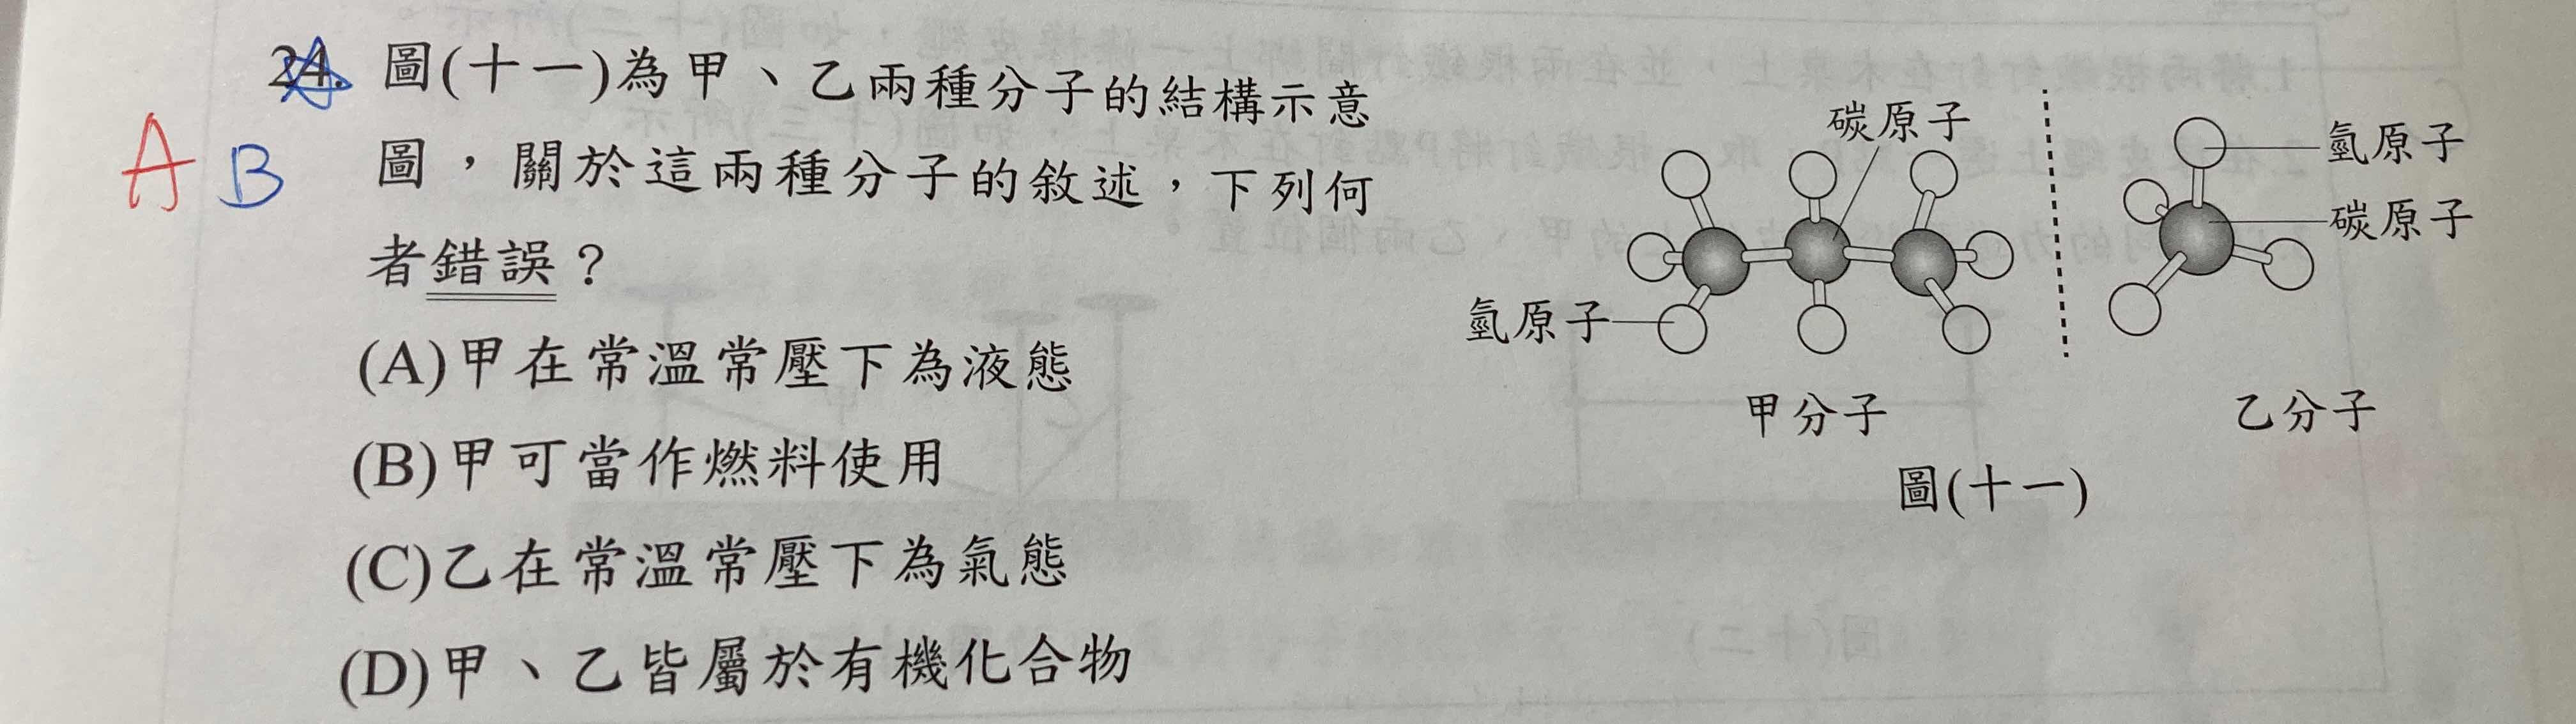 24. 圖(十一)為甲、乙兩種分子的結構示意
圖，關於這兩種分子的敘述，下列何
者錯誤？
A B
(A)甲在常溫常壓下為液態
(B)甲可當作燃料使用
(C)乙在常溫常壓下為氣態
(D)甲、乙皆屬於有機化合物
碳原子
氫原子
甲分子
氫原子
碳原子
乙分子
圖(十一)